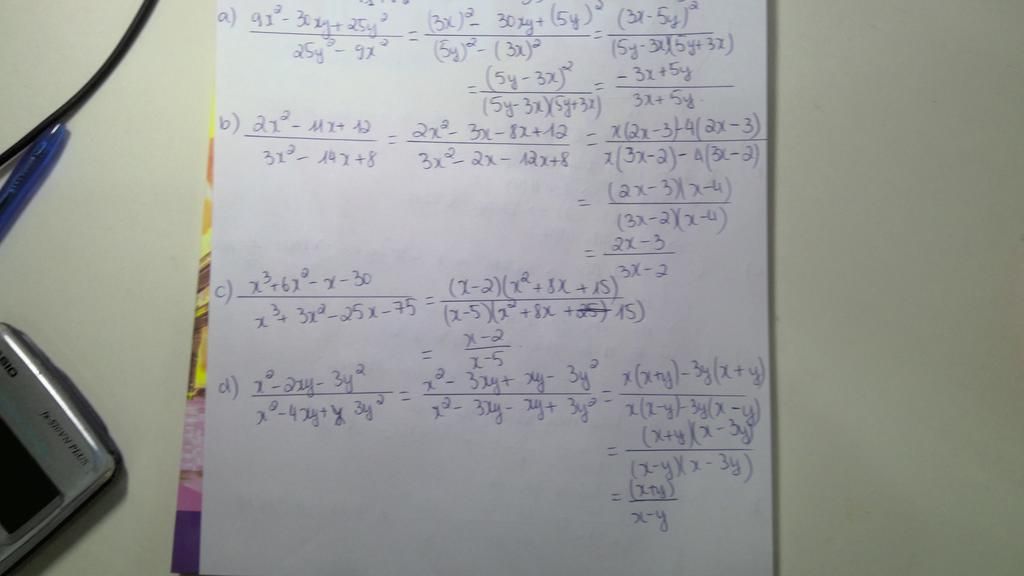 a) (9x² - 30xy + 25y²)/(25y² - 9x²) = ((3x)² - 30xy + (5y)²)/((5y)² - (3x)²) = (3x-5y)²/((5y-3x)(5y+3x))
= (5y-3x)²/((5y-3x)(5y+3x)) = (-3x+5y)/(3x+5y)
b) (2x² - 11x + 12)/(3x² - 14x + 8) = (2x² - 3x - 8x + 12)/(3x² - 2x - 12x + 8) = (x(2x-3) - 4(2x-3))/(x(3x-2) - 4(3x-2))
= ((2x-3)(x-4))/((3x-2)(x-4))
= (2x-3)/(3x-2)
c) (x³ + 6x² - x - 30)/(x³ + 3x² - 25x - 75) = ((x-2)(x² + 8x + 15))/((x-5)(x² + 8x + 15))
= (x-2)/(x-5)
d) (x² - 2xy - 3y²)/(x² - 4xy + 3y²) = (x² - 3xy + xy - 3y²)/(x² - 3xy - xy + 3y²) = (x(x+y) - 3y(x+y))/(x(x-y) - 3y(x-y))
= ((x+y)(x-3y))/((x-y)(x-3y))
= (x+y)/(x-y)